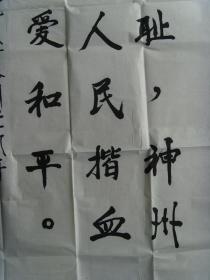 耻，神州
人民揩血
爱和平。